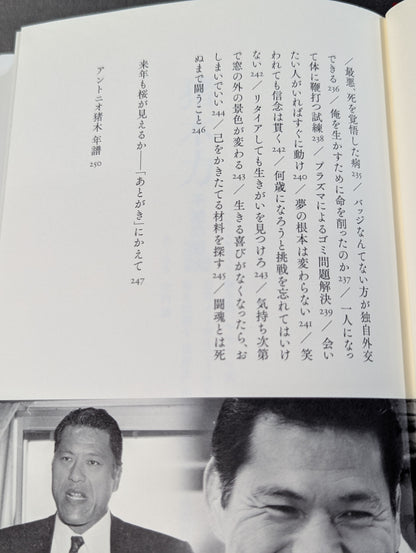 ／最悪、死を覚悟した病 235 ／ バッジなんてない方が独自外交
できる 236 ／ 俺を生かすために命を削ったのか 237 ／ 一人になっ
て体に鞭打つ試練 238 ／ プラズマによるゴミ問題解決 239 ／ 会い
たい人がいればすぐに動け 240 ／ 夢の根本は変わらない 241 ／ 笑
われても信念は貫く 242 ／ 何歳になろうと挑戦を忘れてはいけ
ない 242 ／ リタイアしても生きがいを見つけろ 243 ／ 気持ち次第
で窓の外の景色が変わる 243 ／ 生きる喜びがなくなったら、お
しまいでいい 244 ／ 己をかきたてる材料を探す 245 ／ 闘魂とは死
ぬまで闘うこと 246
来年も桜が見えるか──「あとがき」にかえて 247
アントニオ猪木 年譜 250